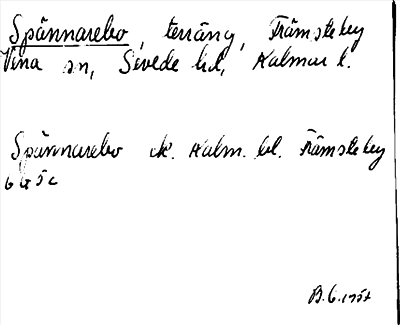 Spännarebo, terräng, Främsteby
Vena sn, Sevede hd, Kalmar l.
Spännarebo ek. Kalm. bl. Främsteby
6 G 5 c
B.G. 1957